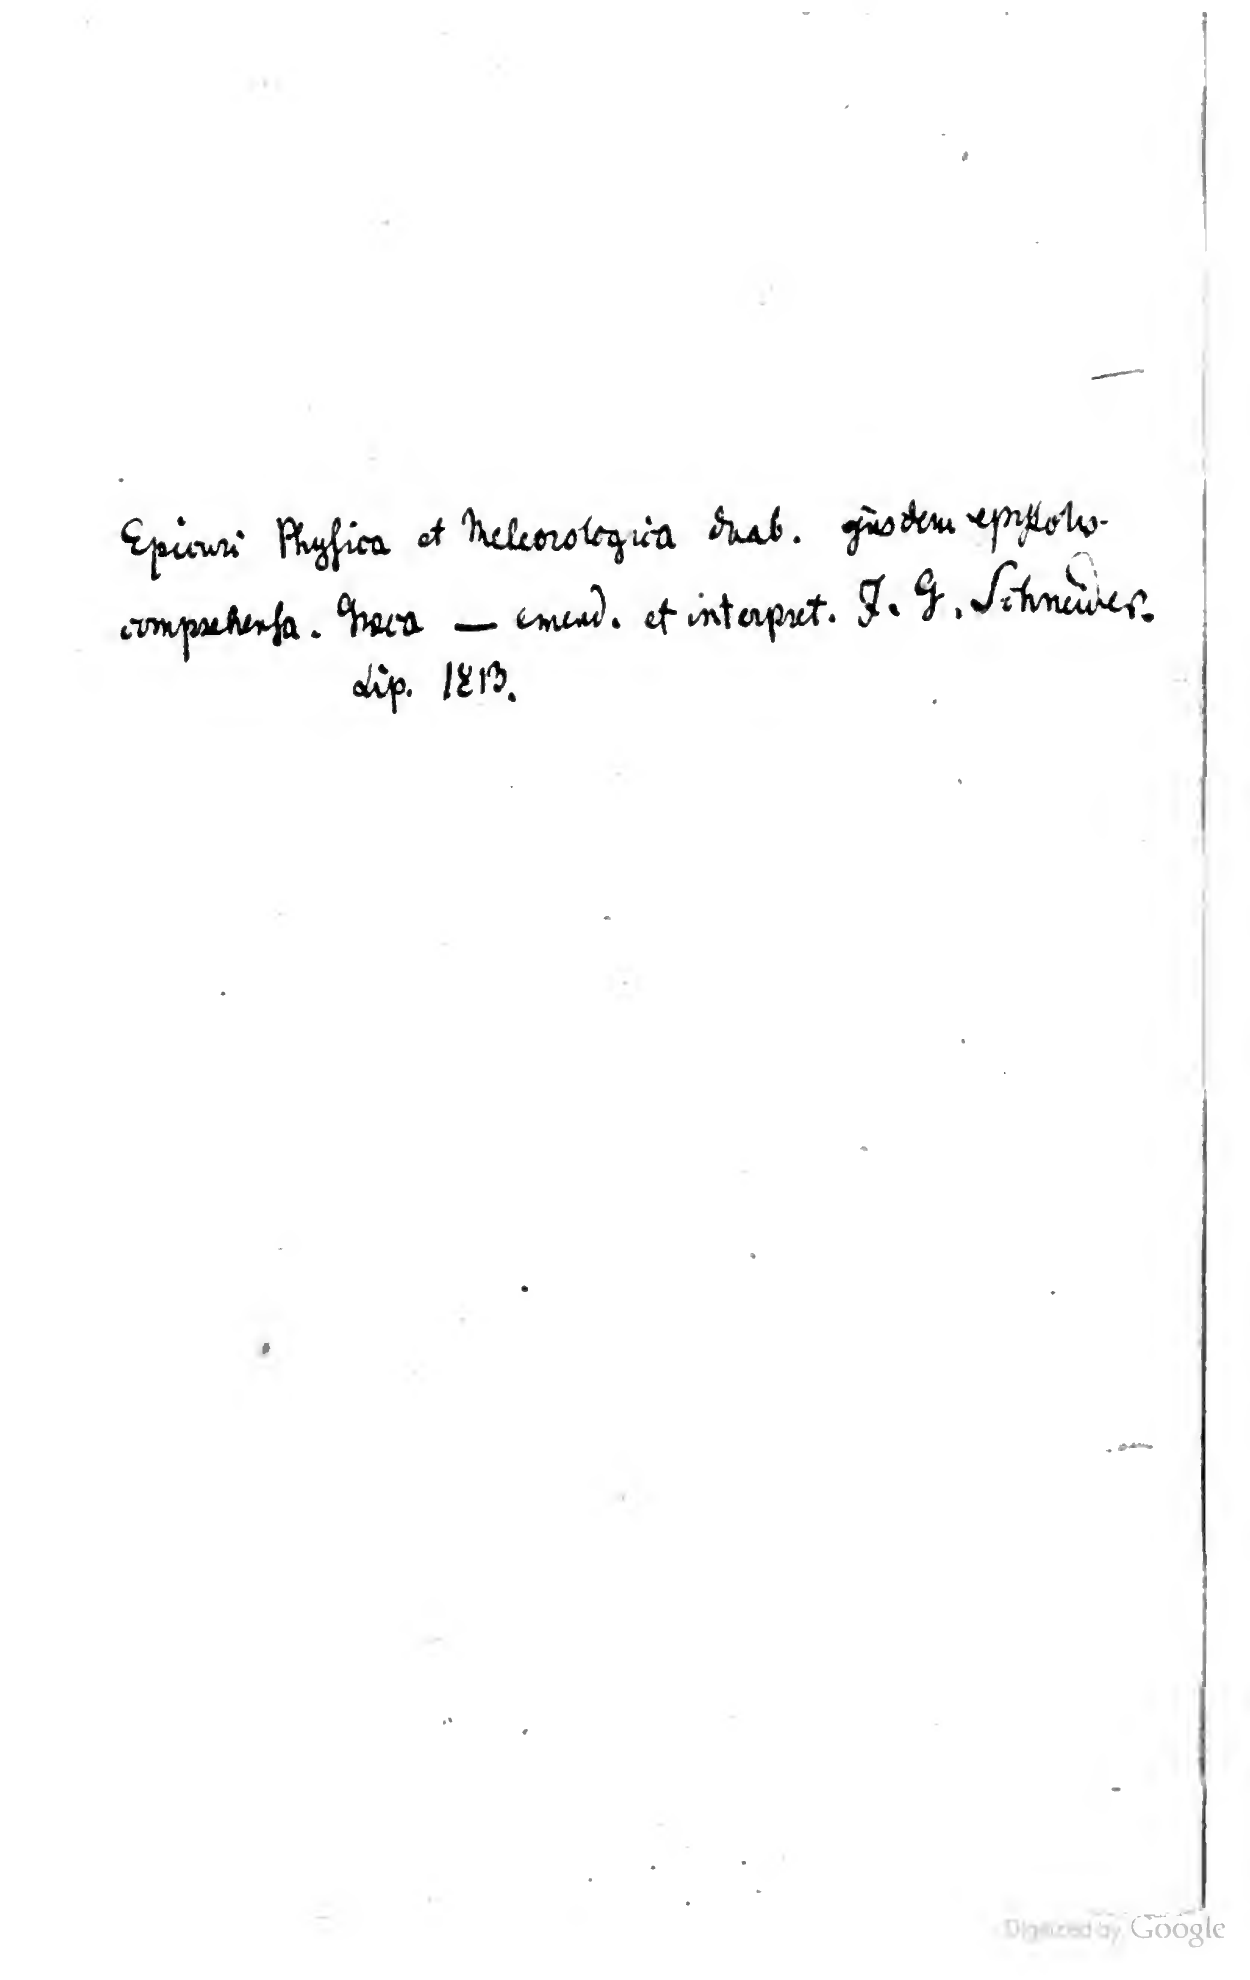 Epicuri Physica et Meteorologica duab. ejusdem epistolis
comprehensa. Graeca — emend. et interpret. J. G. Schneider.
Lip. 1813.
Digitized by Google